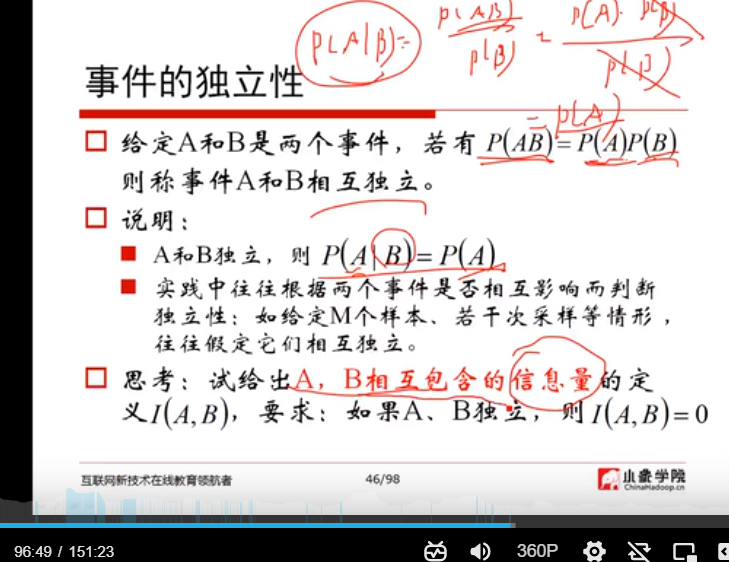 P(A|B)= P(AB)/P(B) = P(A)·P(B)/P(B)
事件的独立性
=P(A)
给定A和B是两个事件，若有 P(AB)=P(A)P(B)
则称事件A和B相互独立。
说明：
A和B独立，则 P(A|B)=P(A)
实践中往往根据两个事件是否相互影响而判断
独立性：如给定M个样本、若干次采样等情形，
往往假定它们相互独立。
思考：试给出A，B相互包含的信息量的定
义I(A,B)，要求：如果A、B独立，则I(A,B)=0
互联网新技术在线教育领航者
46/98
小象学院
ChinaHadoop.cn
96:49 / 151:23
360P